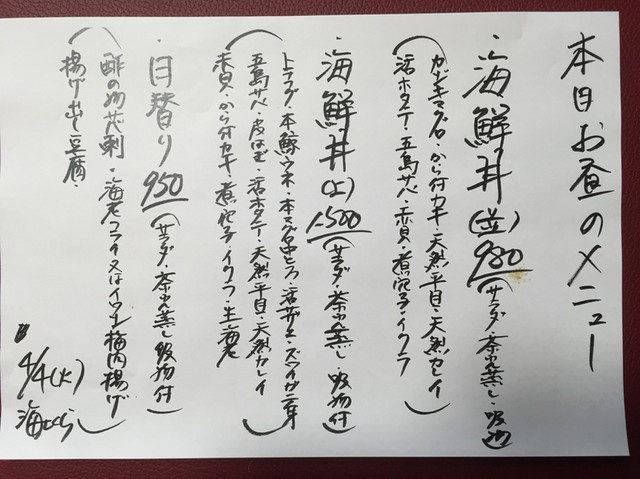 本日お昼のメニュー
・海鮮丼(並)980(サラダ・茶ワン蒸し・吸物)
カジキマグロ・から付カキ・天然平目・天然カレイ
活ホタテ・五島サバ・赤貝・煮穴子・イクラ
・海鮮丼(上)1,500(サラダ・茶ワン蒸し 吸物付)
トラフグ・本鯨ウネ・本マグロ中とろ・活サザエ・ズワイガニ
五島サバ・皮はぎ・活ホタテ・天然平目・天然カレイ
赤貝・から付カキ・煮穴子・イクラ・生海老
・日替り950(サラダ・茶ワン蒸し 吸物付)
酢の物 刺・海老フライ又はイワシ梅肉揚げ
揚げ出し豆腐・
4/4(火)